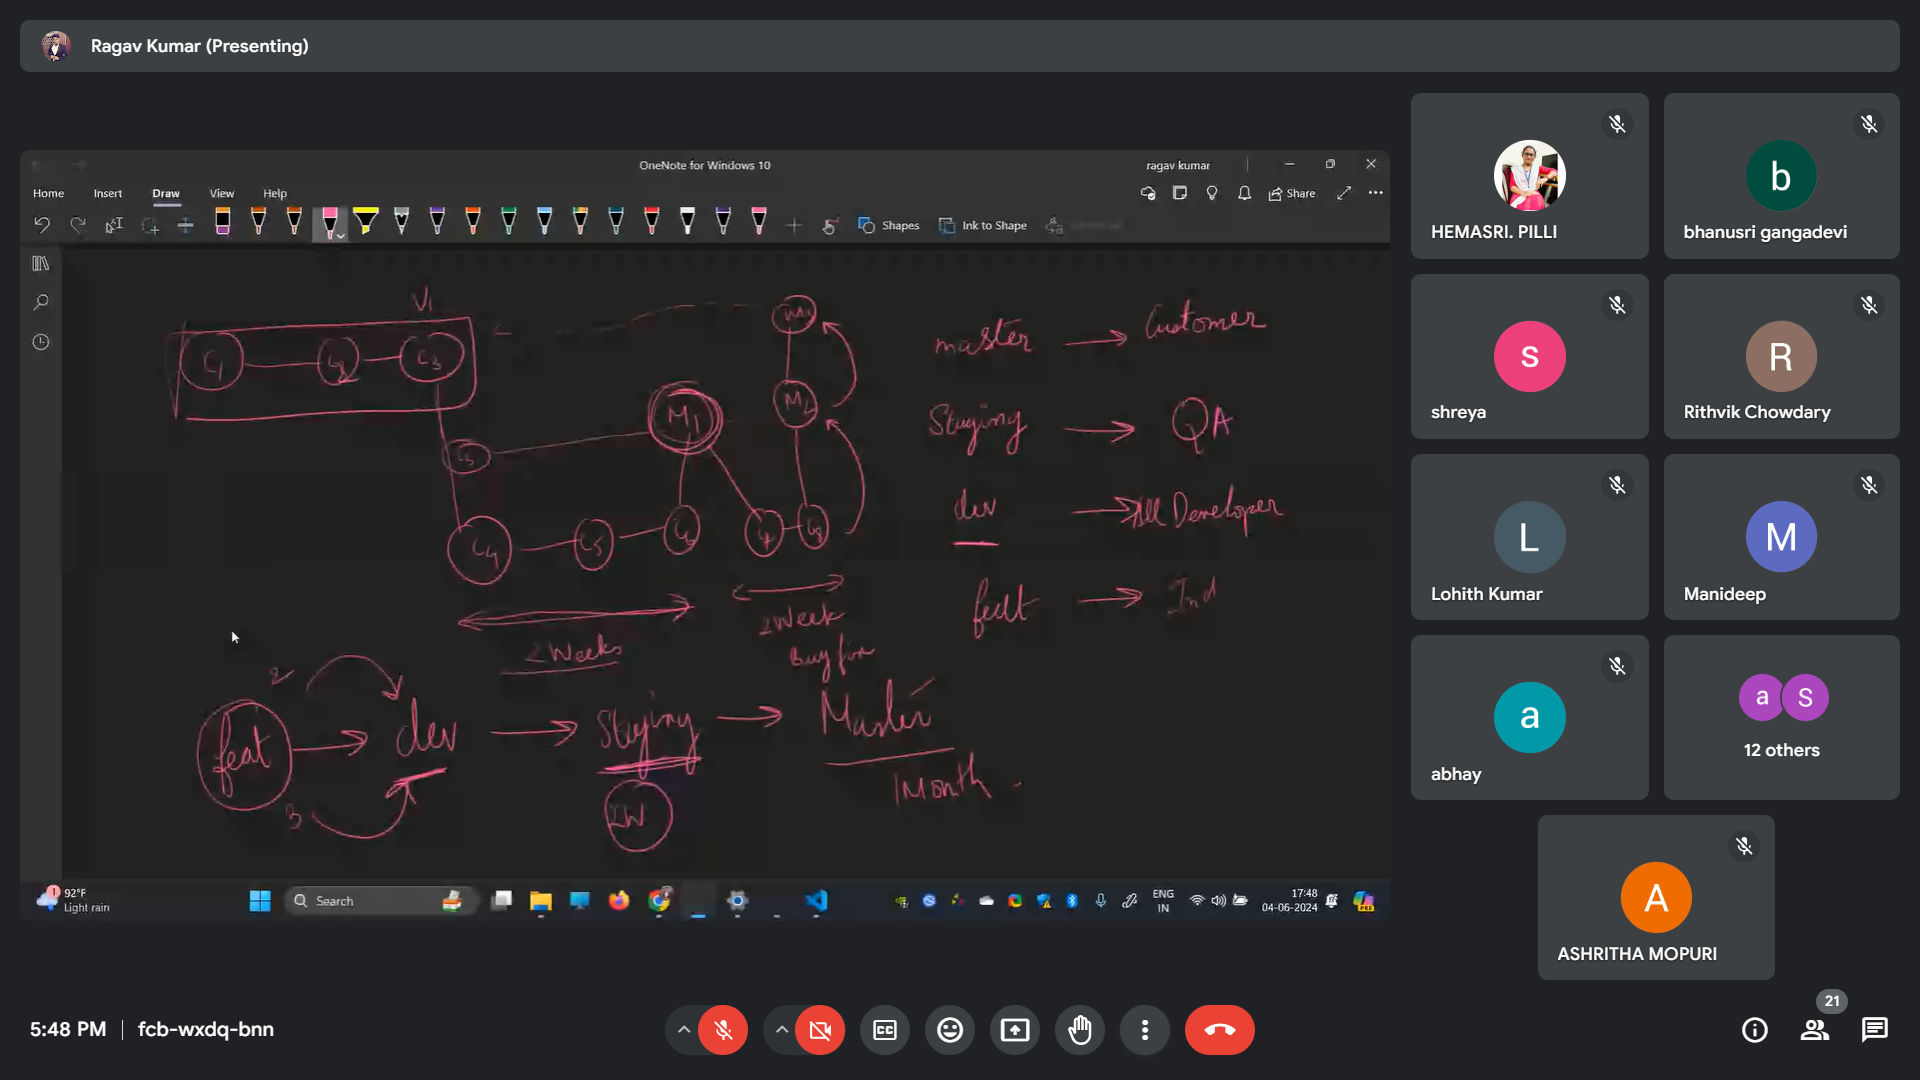 Ragav Kumar (Presenting)
OneNote for Windows 10
ragav kumar
Home Insert Draw View Help
Share
Shapes
Ink to Shape
V1
C1
C2
C3
C3
M1
M2
C4
C5
C6
C7
C8
2 Weeks
2 Week
Bug fix
master → Customer
Staging → QA
dev → All Developer
feat → Ind
2
feat → dev → Staging → Master
3
2W
1 Month
92°F
Light rain
Search
ENG
IN
17:48
04-06-2024
HEMASRI. PILLI
b
bhanusri gangadevi
s
shreya
R
Rithvik Chowdary
L
Lohith Kumar
M
Manideep
a
abhay
a S
12 others
A
ASHRITHA MOPURI
5:48 PM | fcb-wxdq-bnn
CC
21